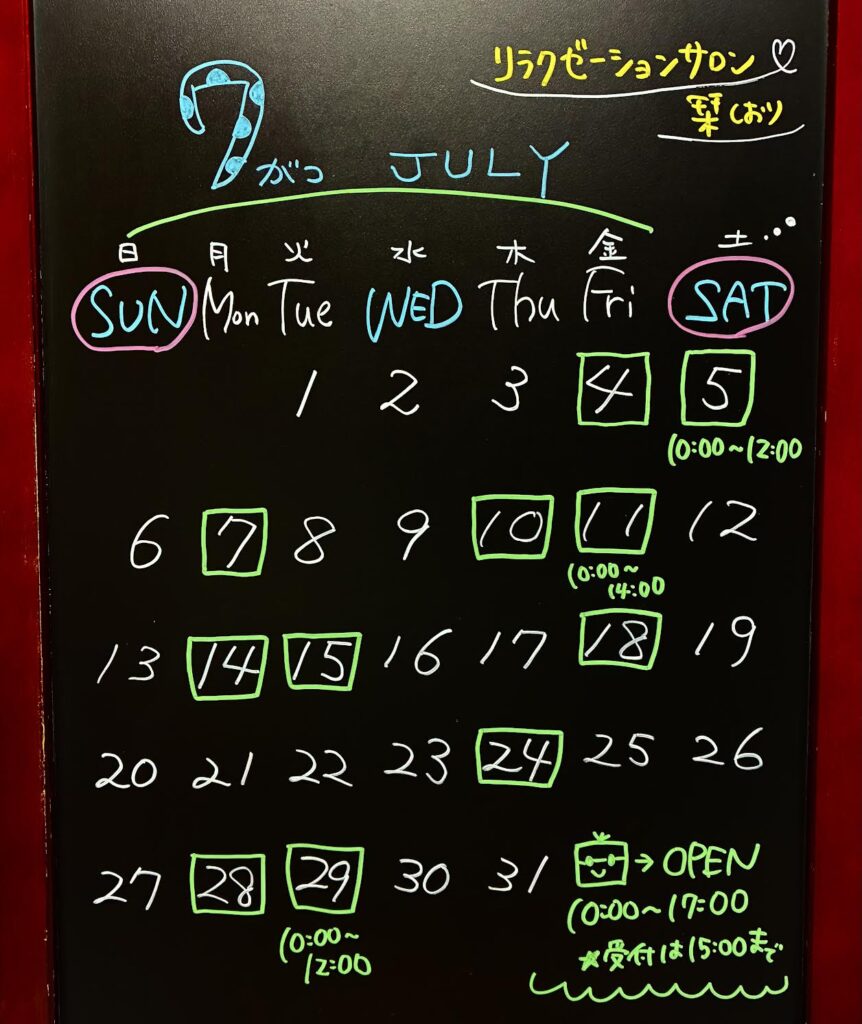 リラクゼーションサロン♡
栞 しおり
7がつ JULY
日 月 火 水 木 金 土
SUN Mon Tue WED Thu Fri SAT
1 2 3 4 5
10:00~12:00
6 7 8 9 10 11 12
10:00~
14:00
13 14 15 16 17 18 19
20 21 22 23 24 25 26
27 28 29 30 31 →OPEN
10:00~17:00
10:00~
12:00
★受付は15:00まで